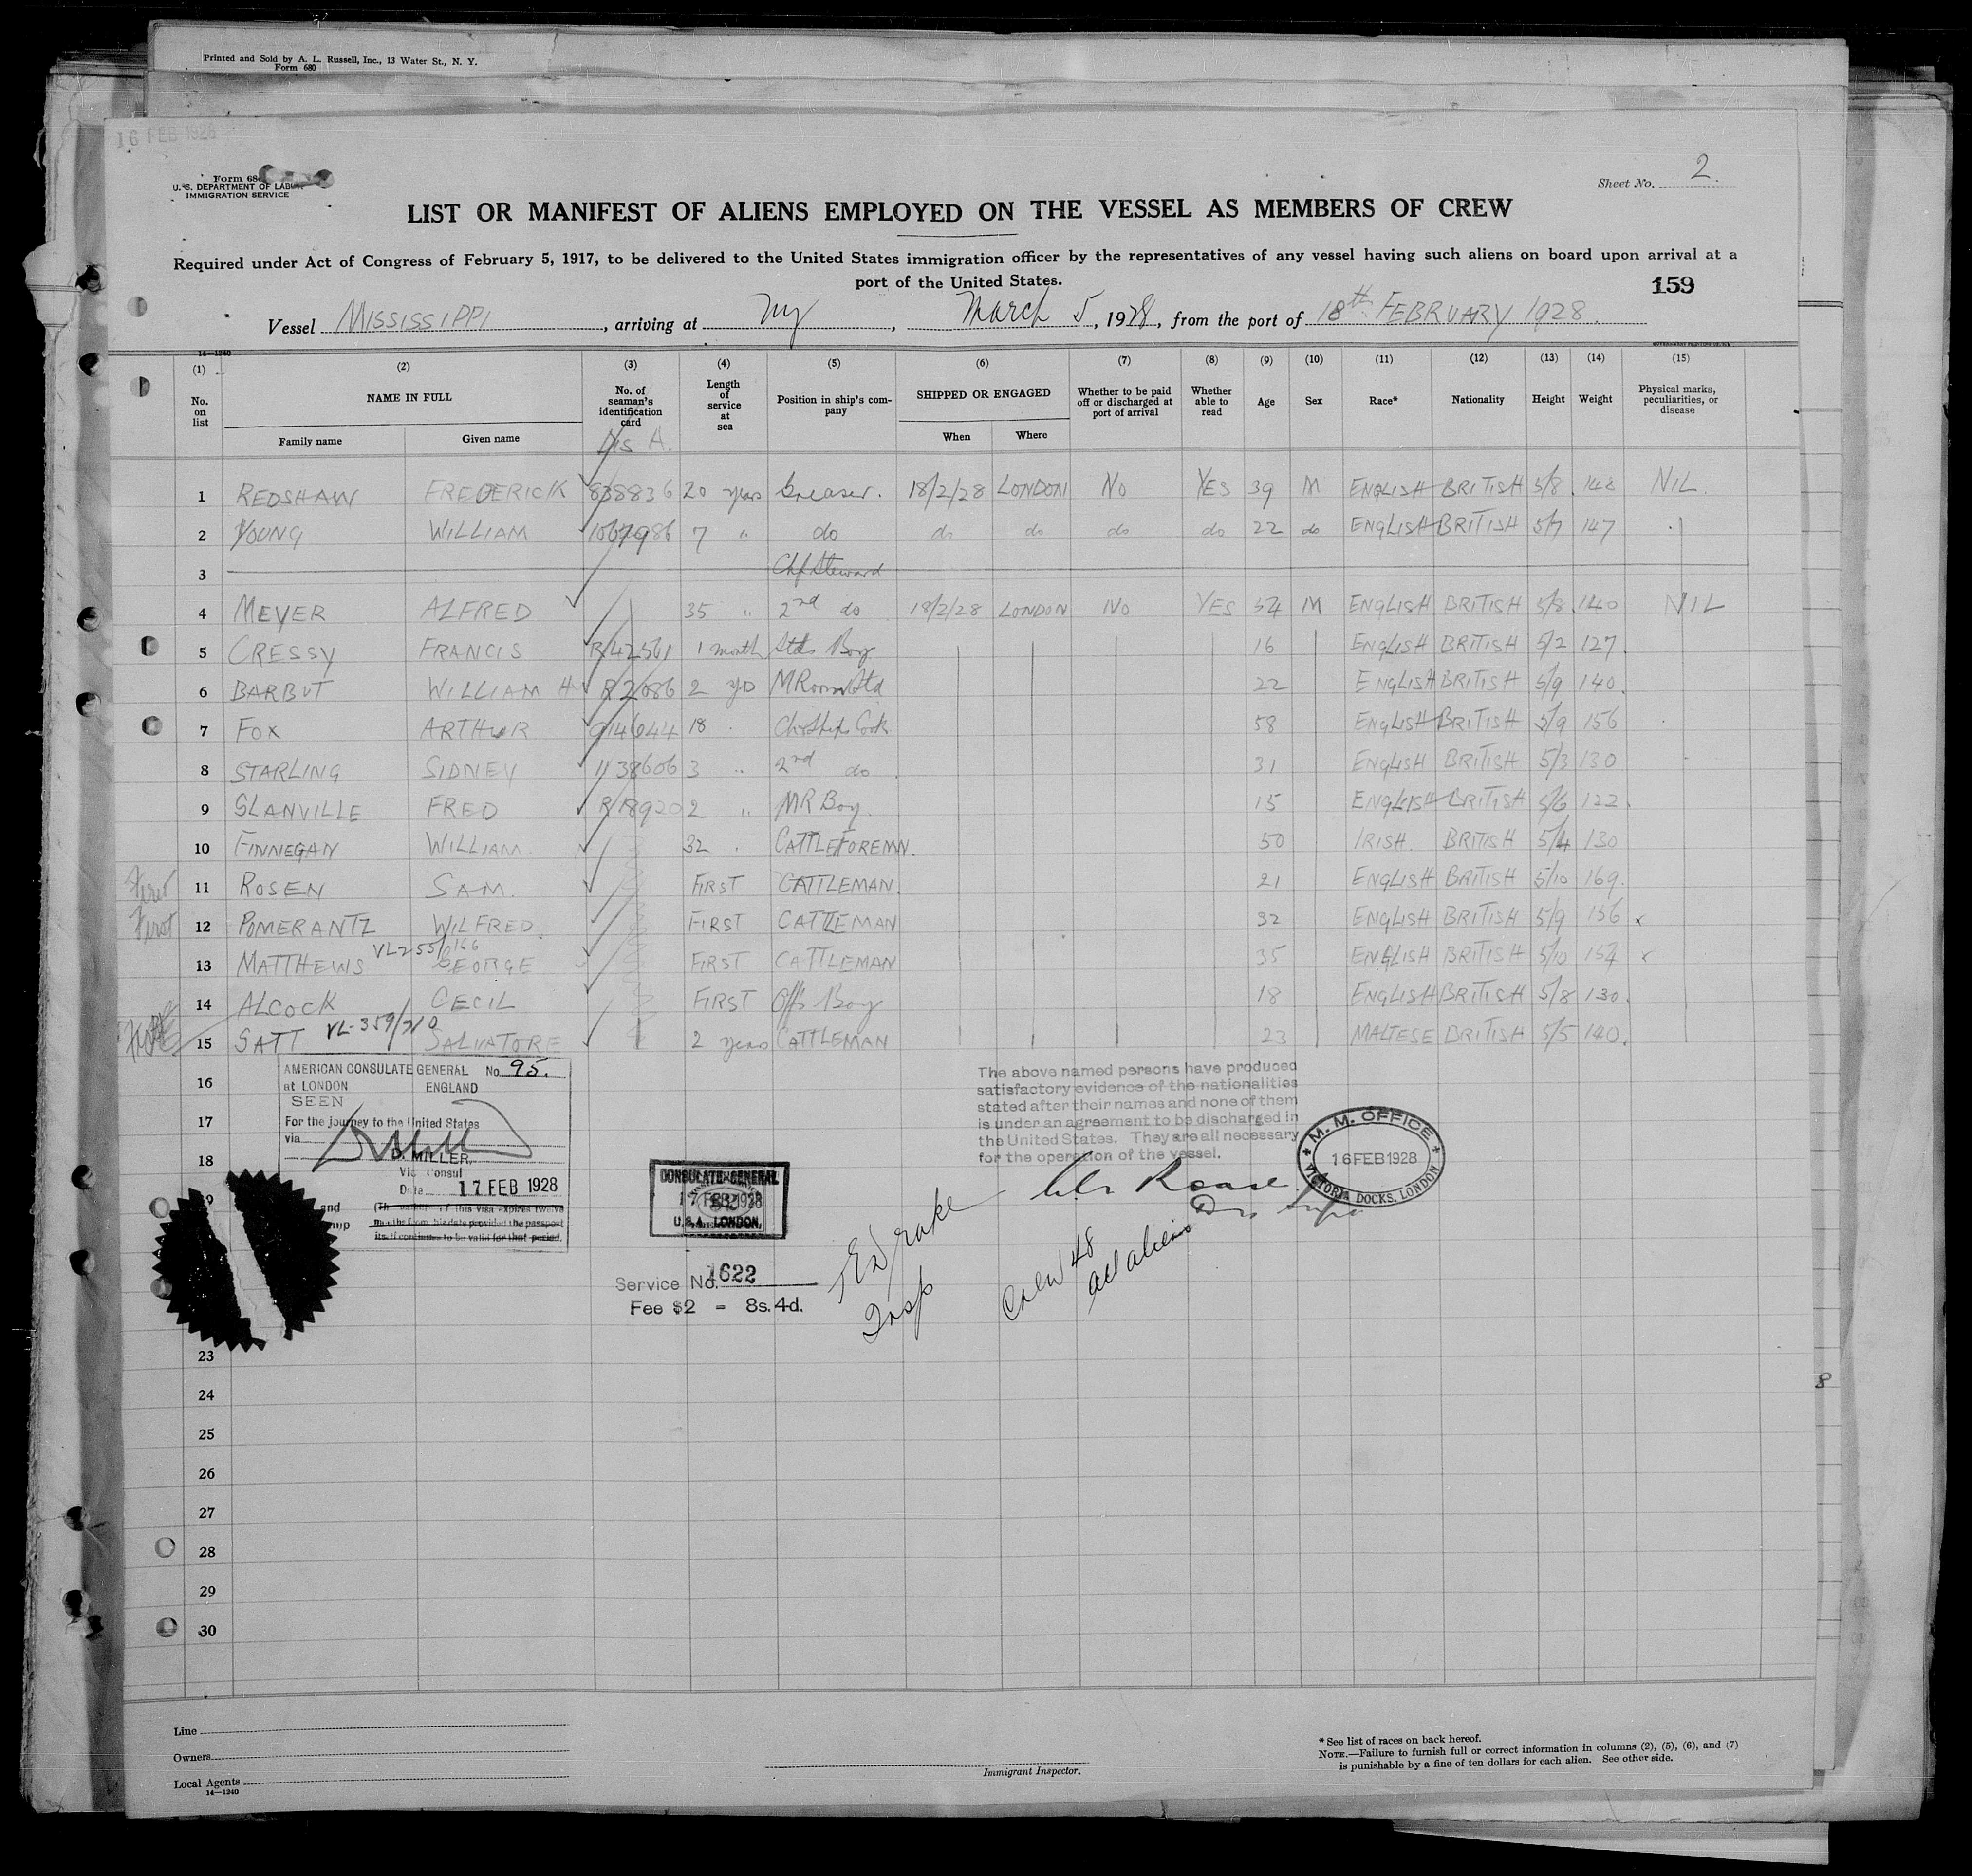 Printed and Sold by A. L. Russell, Inc., 13 Water St., N. Y.
Form 680
16 FEB 1928
Form 68
U. S. DEPARTMENT OF LABOR
IMMIGRATION SERVICE
Sheet No. 2.
LIST OR MANIFEST OF ALIENS EMPLOYED ON THE VESSEL AS MEMBERS OF CREW
Required under Act of Congress of February 5, 1917, to be delivered to the United States immigration officer by the representatives of any vessel having such aliens on board upon arrival at a
port of the United States.
159
Vessel MISSISSIPPI, arriving at NY, March 5, 1928, from the port of 18th FEBRUARY 1928.
14—1240
(1) (2) (3) (4) (5) (6) (7) (8) (9) (10) (11) (12) (13) (14) (15)
No. on list NAME IN FULL No. of seaman's identification card Length of service at sea Position in ship's company SHIPPED OR ENGAGED Whether to be paid off or discharged at port of arrival Whether able to read Age Sex Race* Nationality Height Weight Physical marks, peculiarities, or disease
Family name Given name When Where
Dis A.
1 REDSHAW FREDERICK 838836 20 years Greaser. 18/2/28 LONDON NO YES 39 M ENGLISH BRITISH 5/8 148 NIL.
2 YOUNG WILLIAM 1067986 7 " do do do do do 22 do ENGLISH BRITISH 5/7 147
3 Chf Steward
4 MEYER ALFRED 35 " 2nd do 18/2/28 LONDON NO YES 54 M ENGLISH BRITISH 5/8 140 NIL
5 CRESSY FRANCIS R/42561 1 month Stds Boy 16 ENGLISH BRITISH 5/2 127.
6 BARBUT WILLIAM H R 2086 2 yrs M Room Std 22 ENGLISH BRITISH 5/9 140.
7 FOX ARTHUR 914644 18 Ch Ships Cook 58 ENGLISH BRITISH 5/9 156
8 STARLING SIDNEY 1138606 3 " 2nd do 31 ENGLISH BRITISH 5/3 130
9 GLANVILLE FRED R/18920 2 " MR Boy. 15 ENGLISH BRITISH 5/6 122.
10 FINNEGAN WILLIAM. 32 CATTLE FOREMN. 50 IRISH. BRITISH 5/4 130
First 11 ROSEN SAM. FIRST CATTLEMAN. 21 ENGLISH BRITISH 5/10 169.
First 12 POMERANTZ WILFRED. FIRST CATTLEMAN 32 ENGLISH BRITISH 5/9 156 x
VL255/166
13 MATTHEWS GEORGE FIRST CATTLEMAN 35 ENGLISH BRITISH 5/10 154 x
14 ALCOCK CECIL FIRST Offs Boy 18 ENGLISH BRITISH 5/8 130.
VL-359/210
15 SATT SALVATORE 2 years CATTLEMAN 23 MALTESE BRITISH 5/5 140.
16
17
18
AMERICAN CONSULATE GENERAL No. 95.
at LONDON ENGLAND
SEEN
For the journey to the United States
via
D. MILLER.
Vice Consul
Date 17 FEB 1928
months from his date provided the passport
itself continues to be valid for that period.
The above named persons have produced
satisfactory evidence of the nationalities
stated after their names and none of them
is under an agreement to be discharged in
the United States. They are all necessary
for the operation of the vessel.
M. M. OFFICE
16 FEB 1928
VICTORIA DOCKS, LONDON
CONSULATE-GENERAL
17 FEB 1928
U.S.A. LONDON.
Service No. 1622
Fee $2 = 8s. 4d.
Drake
Insp
Crew 48
all aliens
23
24
25
26
27
28
29
30
8
Line
Owners
Local Agents
14—1240
Immigrant Inspector.
* See list of races on back hereof.
NOTE.—Failure to furnish full or correct information in columns (2), (5), (6), and (7)
is punishable by a fine of ten dollars for each alien. See other side.